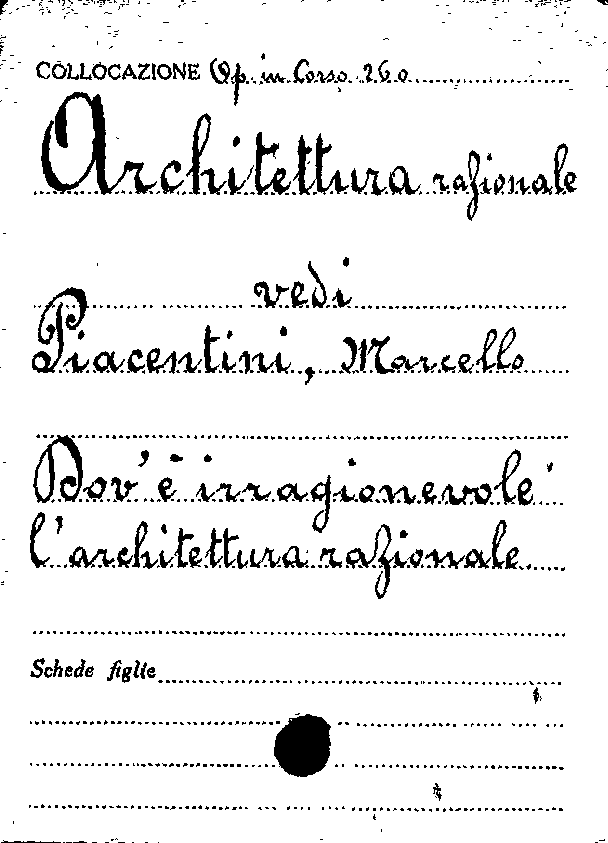 COLLOCAZIONE Op. in Corso 260
Architettura razionale
vedi
Piacentini, Marcello
Dov'è irragionevole
l'architettura razionale.
Schede figlie